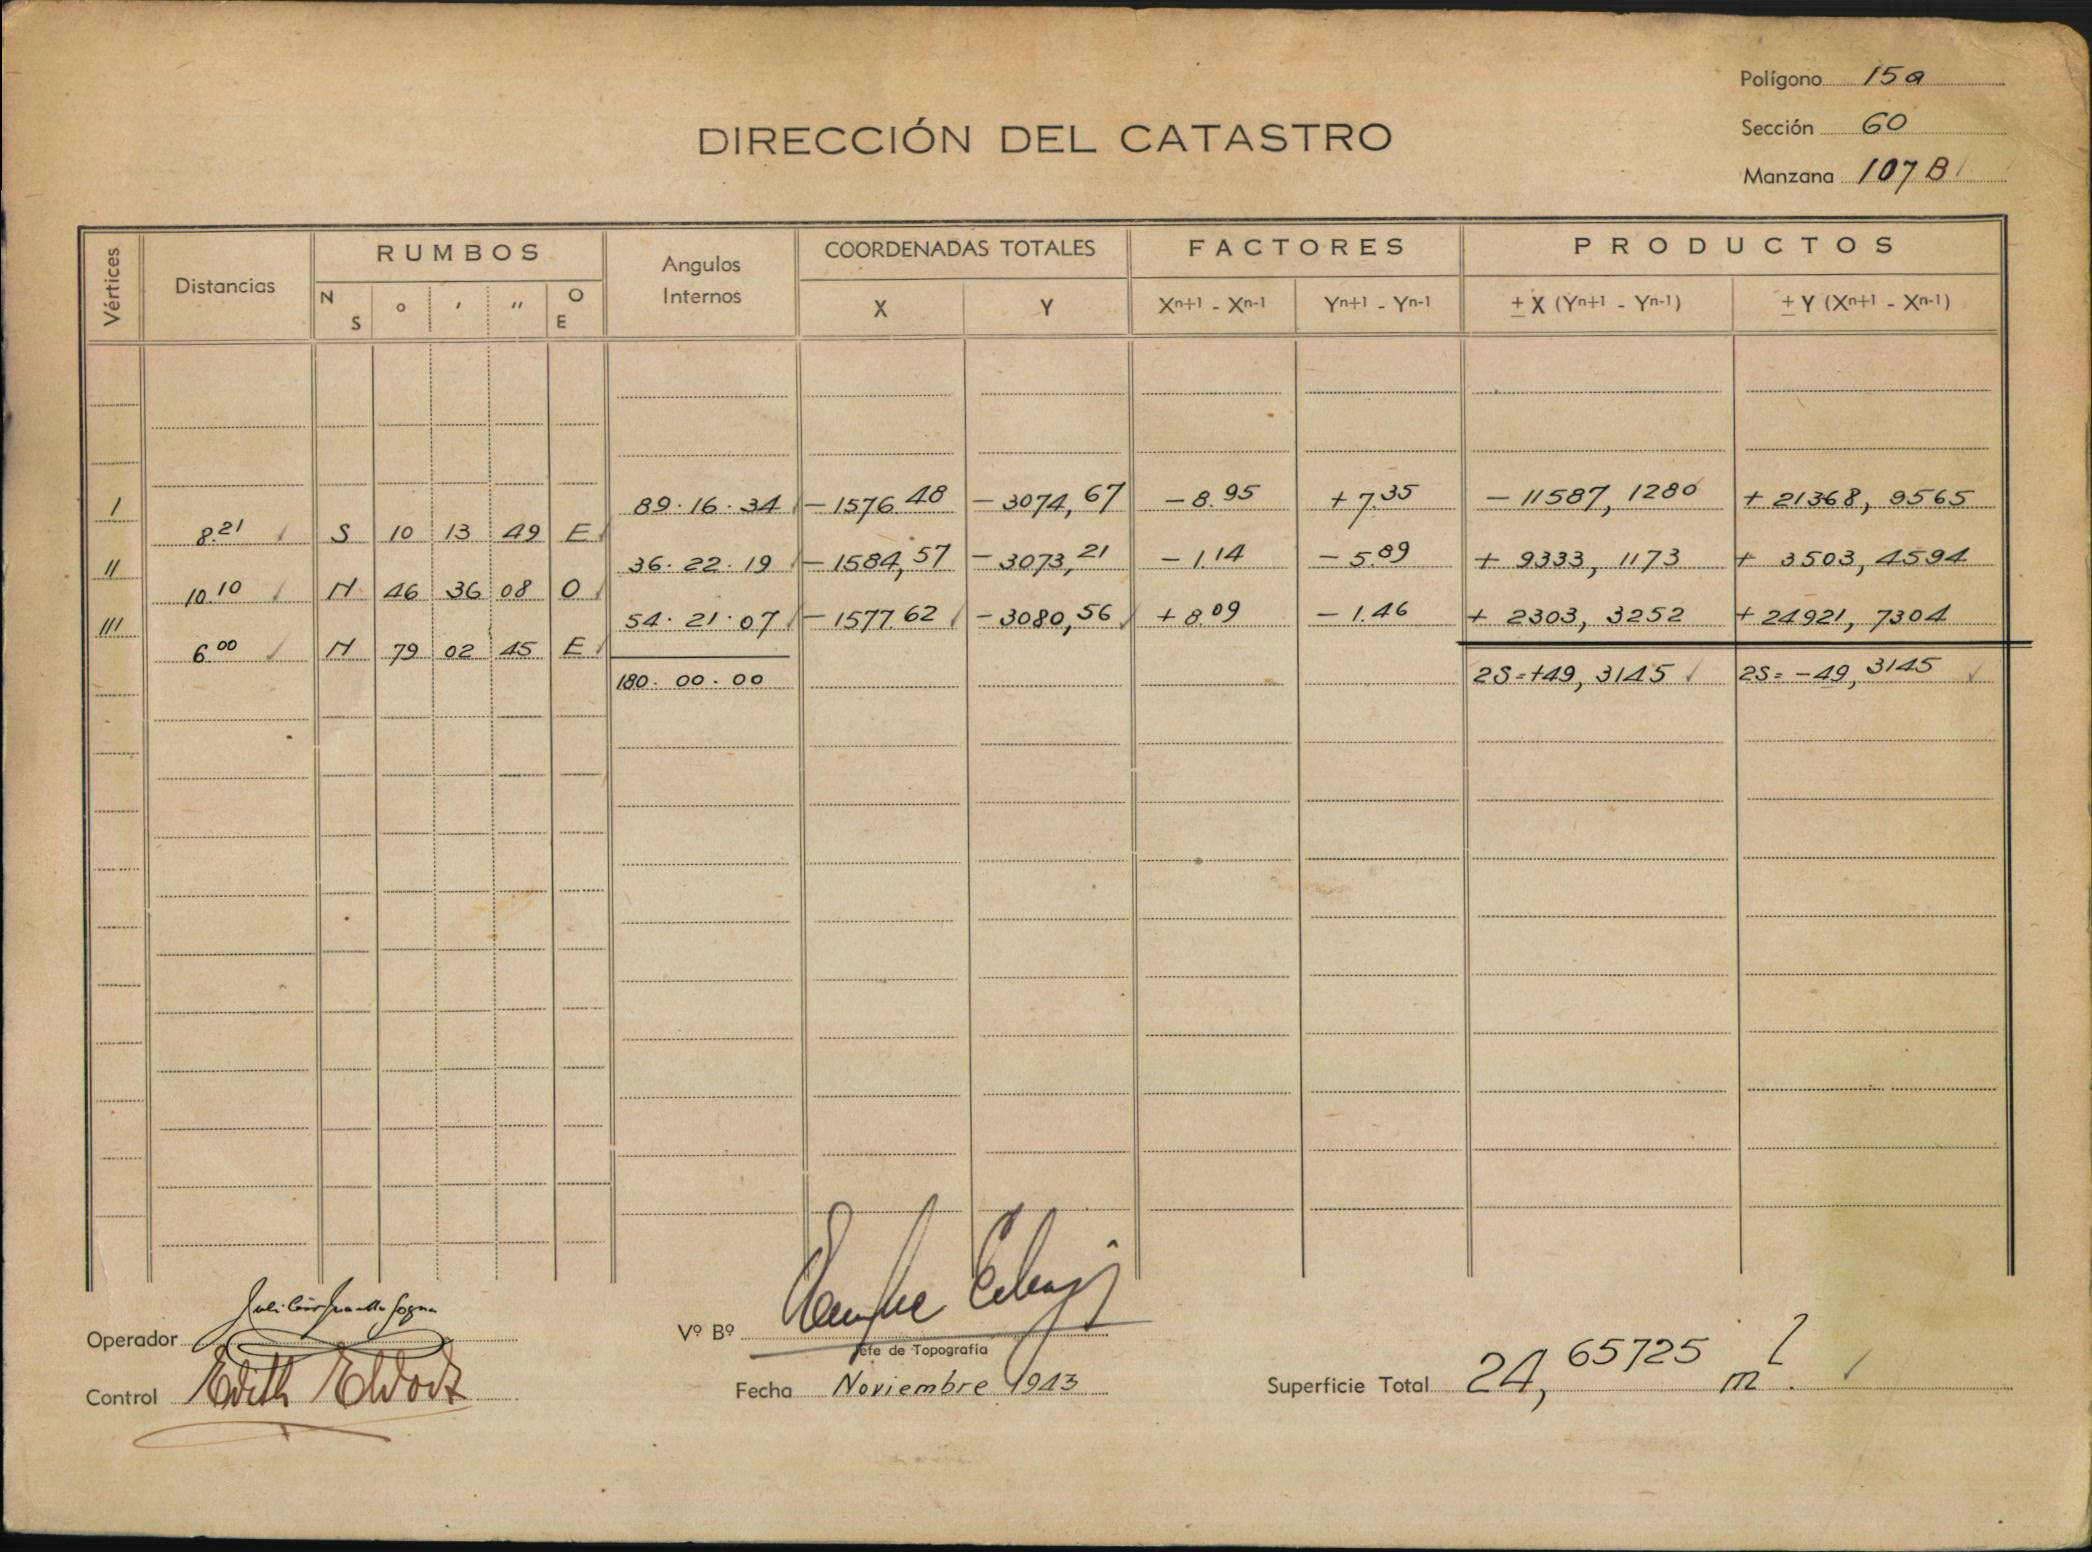 Polígono 15a
DIRECCIÓN DEL CATASTRO
Sección 60
Manzana 107 B
Vértices Distancias RUMBOS Angulos Internos COORDENADAS TOTALES FACTORES PRODUCTOS
N S ° ' " O E X Y Xn+1 - Xn-1 Yn+1 - Yn-1 ± X (Yn+1 - Yn-1) ± Y (Xn+1 - Xn-1)
I 89.16.34 -1576.48 -3074,67 -8.95 +7.35 -11587,1280 +21368,9565
8.21 S 10 13 49 E
II 36.22.19 -1584,57 -3073,21 -1.14 -5.89 +9333,1173 +3503,4594
10.10 N 46 36 08 O
III 54.21.07 -1577.62 -3080,56 +8.09 -1.46 +2303,3252 +24921,7304
6.00 N 79 02 45 E
180.00.00 2S=+49,3145 2S=-49,3145
Operador
Vº Bº
Jefe de Topografía
Control Edith
Fecha Noviembre 1943
Superficie Total 24,65725 m2.